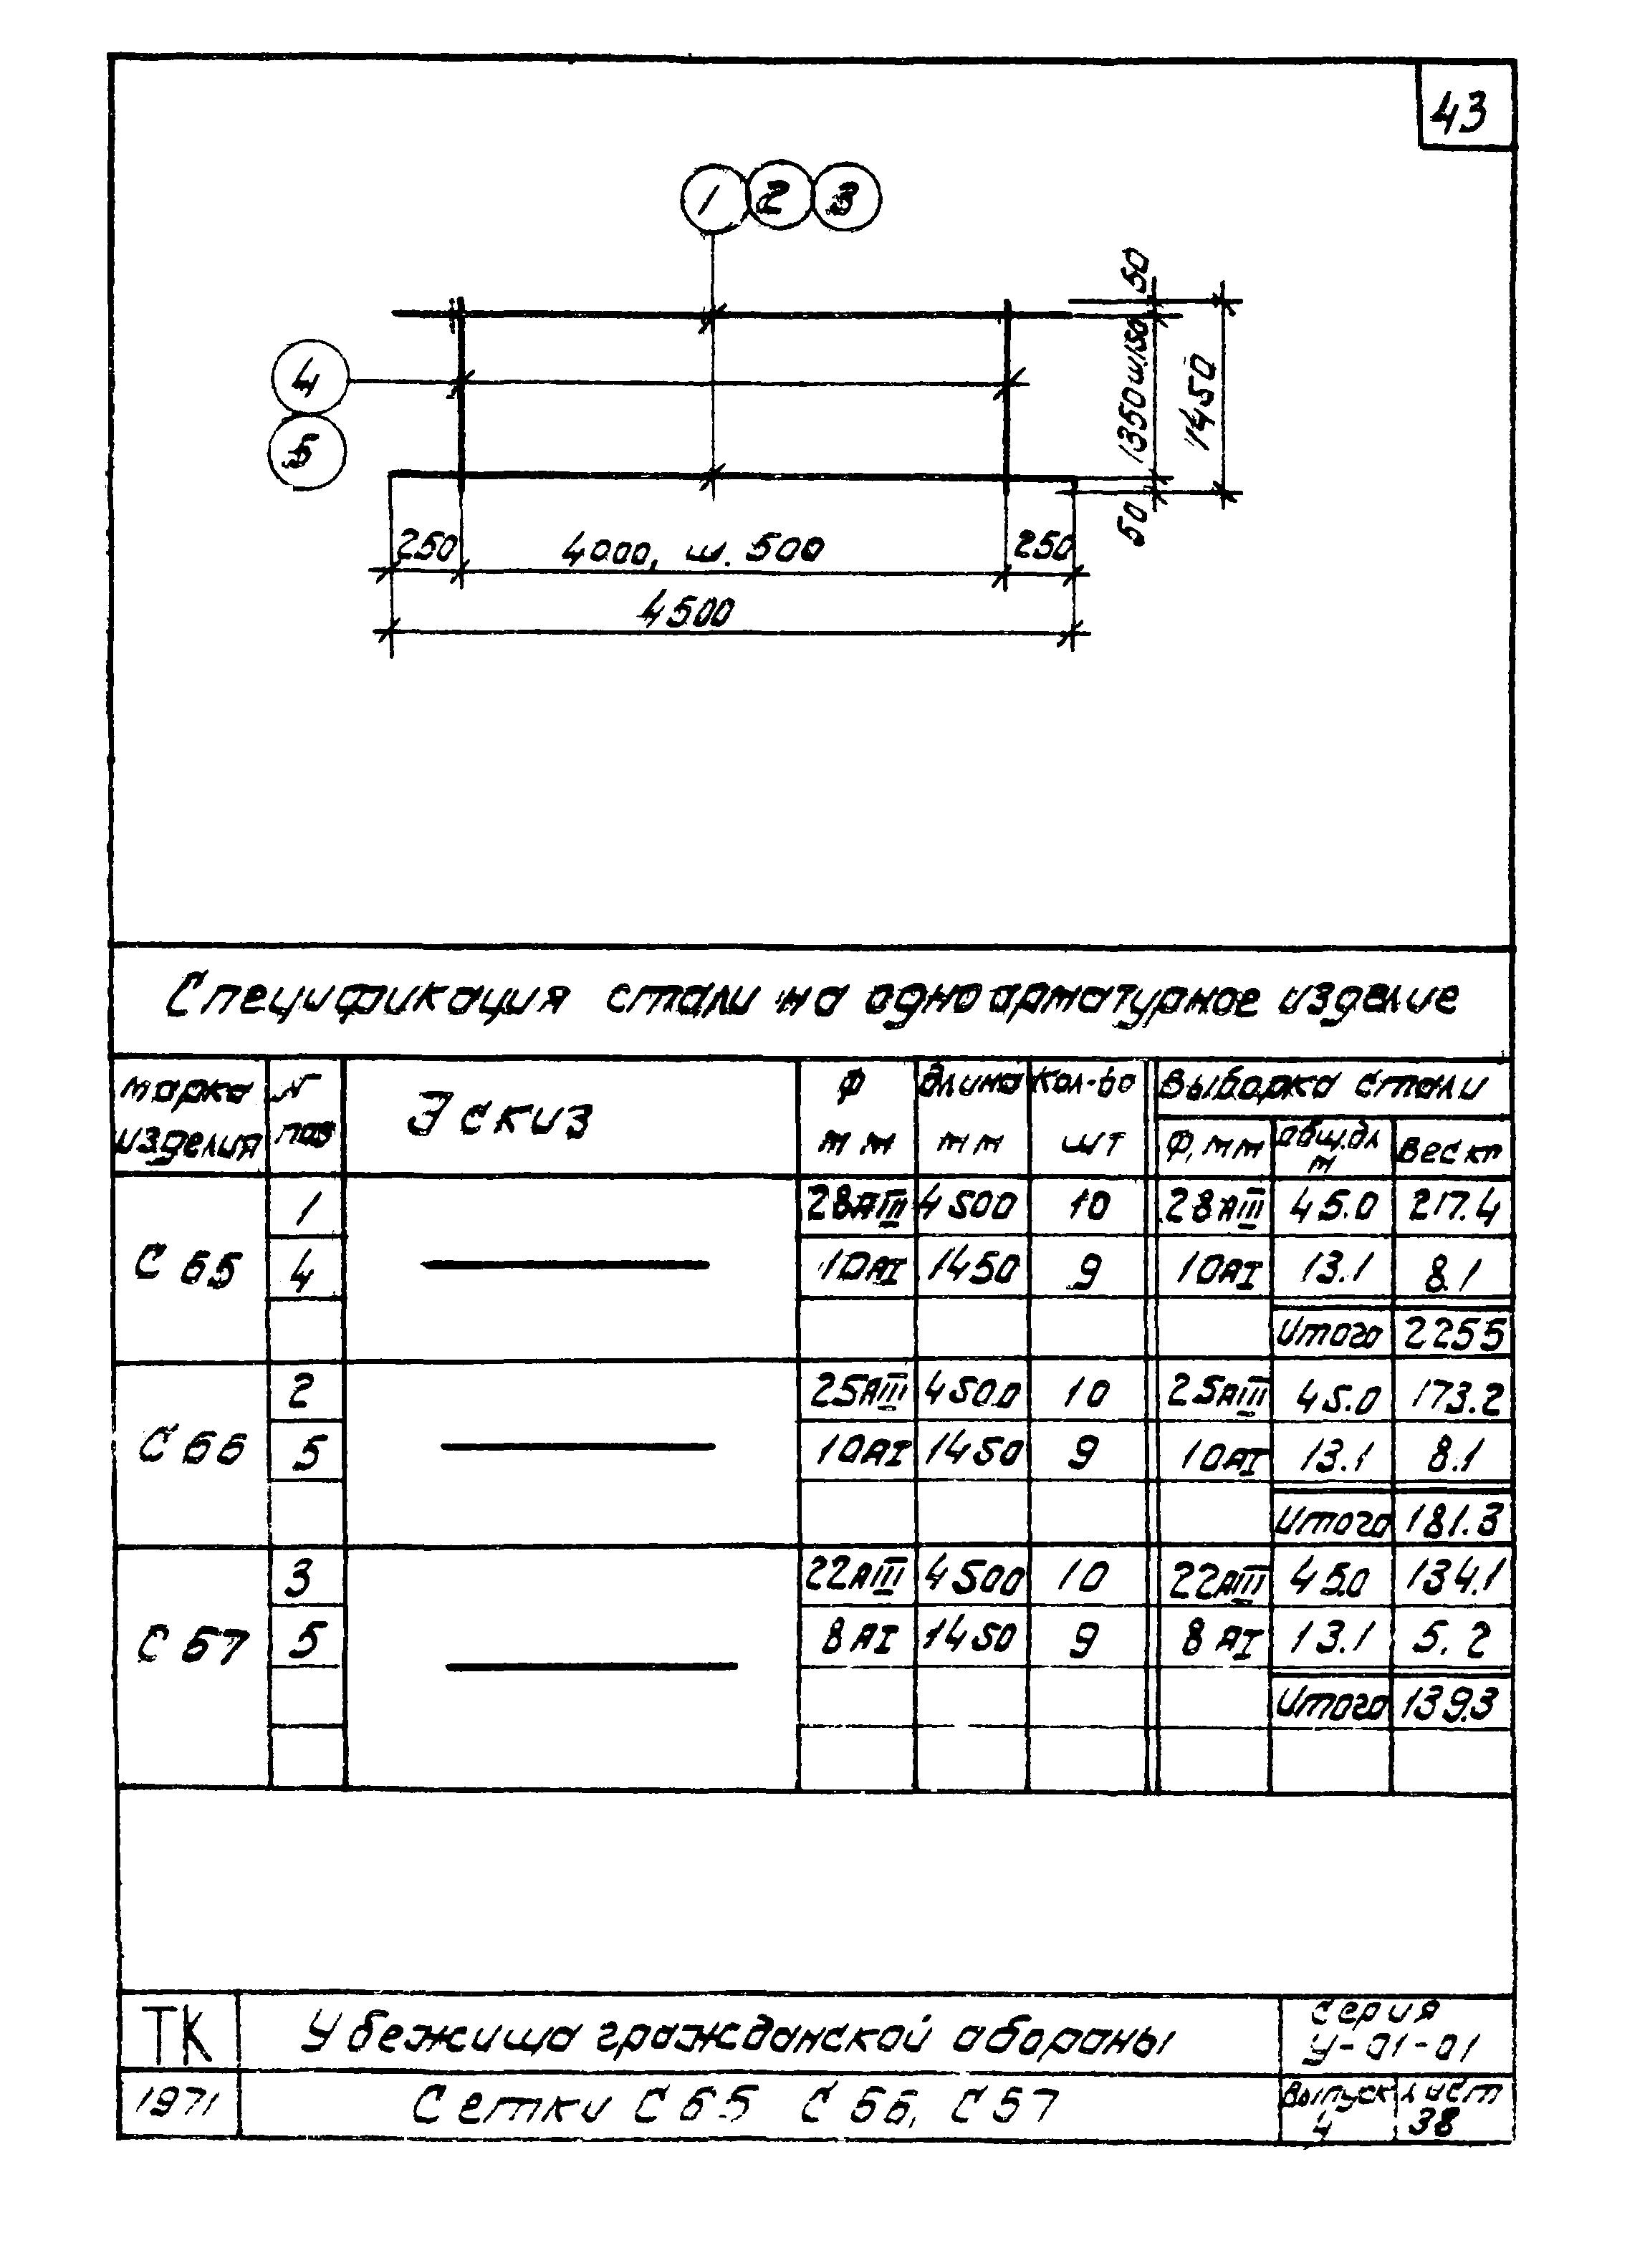 43
1 2 3
50
4
1350 ш.150
1450
5
50
250 4000, ш. 500 250
4500
Спецификация стали на одно арматурное изделие
марка изделия N поз Эскиз Ф мм длина мм Кол-во шт Выборка стали
Ф, мм общ.дл м Вес кг
С 65 1 28АIII 4500 10 28АIII 45.0 217.4
4 10АI 1450 9 10АI 13.1 8.1
Итого 2255
С 66 2 25АIII 4500 10 25АIII 45.0 173.2
5 10АI 1450 9 10АI 13.1 8.1
Итого 181.3
С 67 3 22АIII 4500 10 22АIII 45.0 134.1
5 8АI 1450 9 8АI 13.1 5.2
Итого 139.3
ТК Убежища гражданской абораны серия
У-01-01
1971 Сетки С 65 С 66, С 67 Выпуск лист
4 38